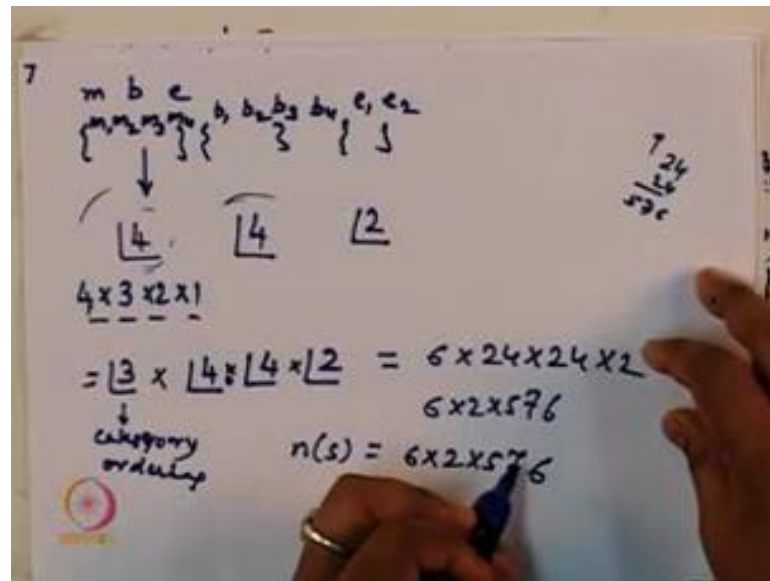 7
m b e
{m₁ m₂ m₃ m₄} {b₁ b₂ b₃ } b₄ { e₁ e₂ }
↓
⌊4 ⌊4 ⌊2
4×3×2×1
= ⌊3 × ⌊4 × ⌊4 × ⌊2 = 6×24×24×2
6×2×576
↓
category
ordering
n(s) = 6×2×576
24
24
576